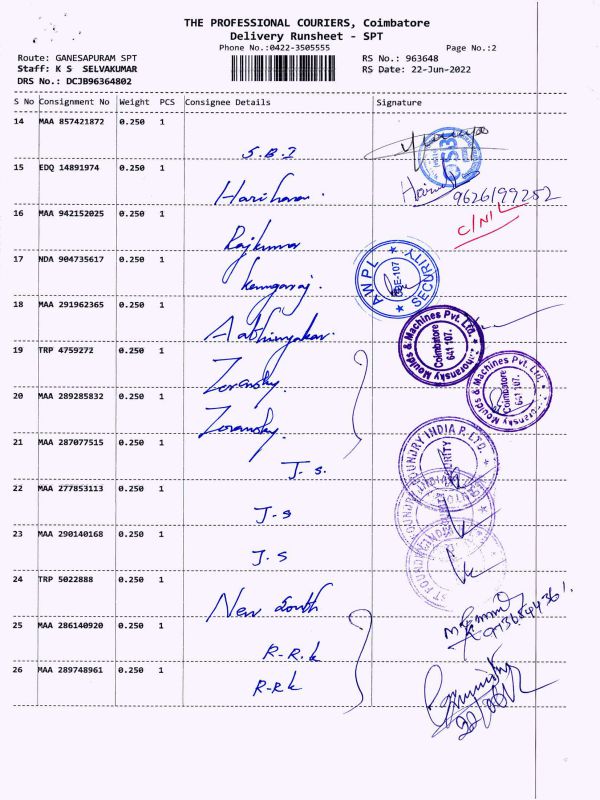 THE PROFESSIONAL COURIERS, Coimbatore
Delivery Runsheet - SPT
Phone No.:0422-3505555
Page No.:2
Route: GANESAPURAM SPT
RS No.: 963648
Staff: K S SELVAKUMAR
RS Date: 22-Jun-2022
DRS No.: DCJB96364802
S No Consignment No Weight PCS Consignee Details Signature
14 MAA 857421872 0.250 1 S.B.I
15 EDQ 14891974 0.250 1 Hariharan 9626199252
16 MAA 942152025 0.250 1 Rajkumar C/NIL
17 NDA 904735617 0.250 1 AWPL SECURITY
18 MAA 291962365 0.250 1
19 TRP 4759272 0.250 1 Zoransky. Moulds & Machines Pvt. Ltd. Coimbatore 641 107.
20 MAA 289285832 0.250 1 Zoransky. Moulds & Machines Pvt. Ltd. Coimbatore 641 107.
21 MAA 287077515 0.250 1 J.s. FOUNDRY INDIA P. LTD.
22 MAA 277853113 0.250 1 J.s
23 MAA 290140168 0.250 1 J.s
24 TRP 5022888 0.250 1 New South
25 MAA 286140920 0.250 1 R-R.k
26 MAA 289748961 0.250 1 R-RK